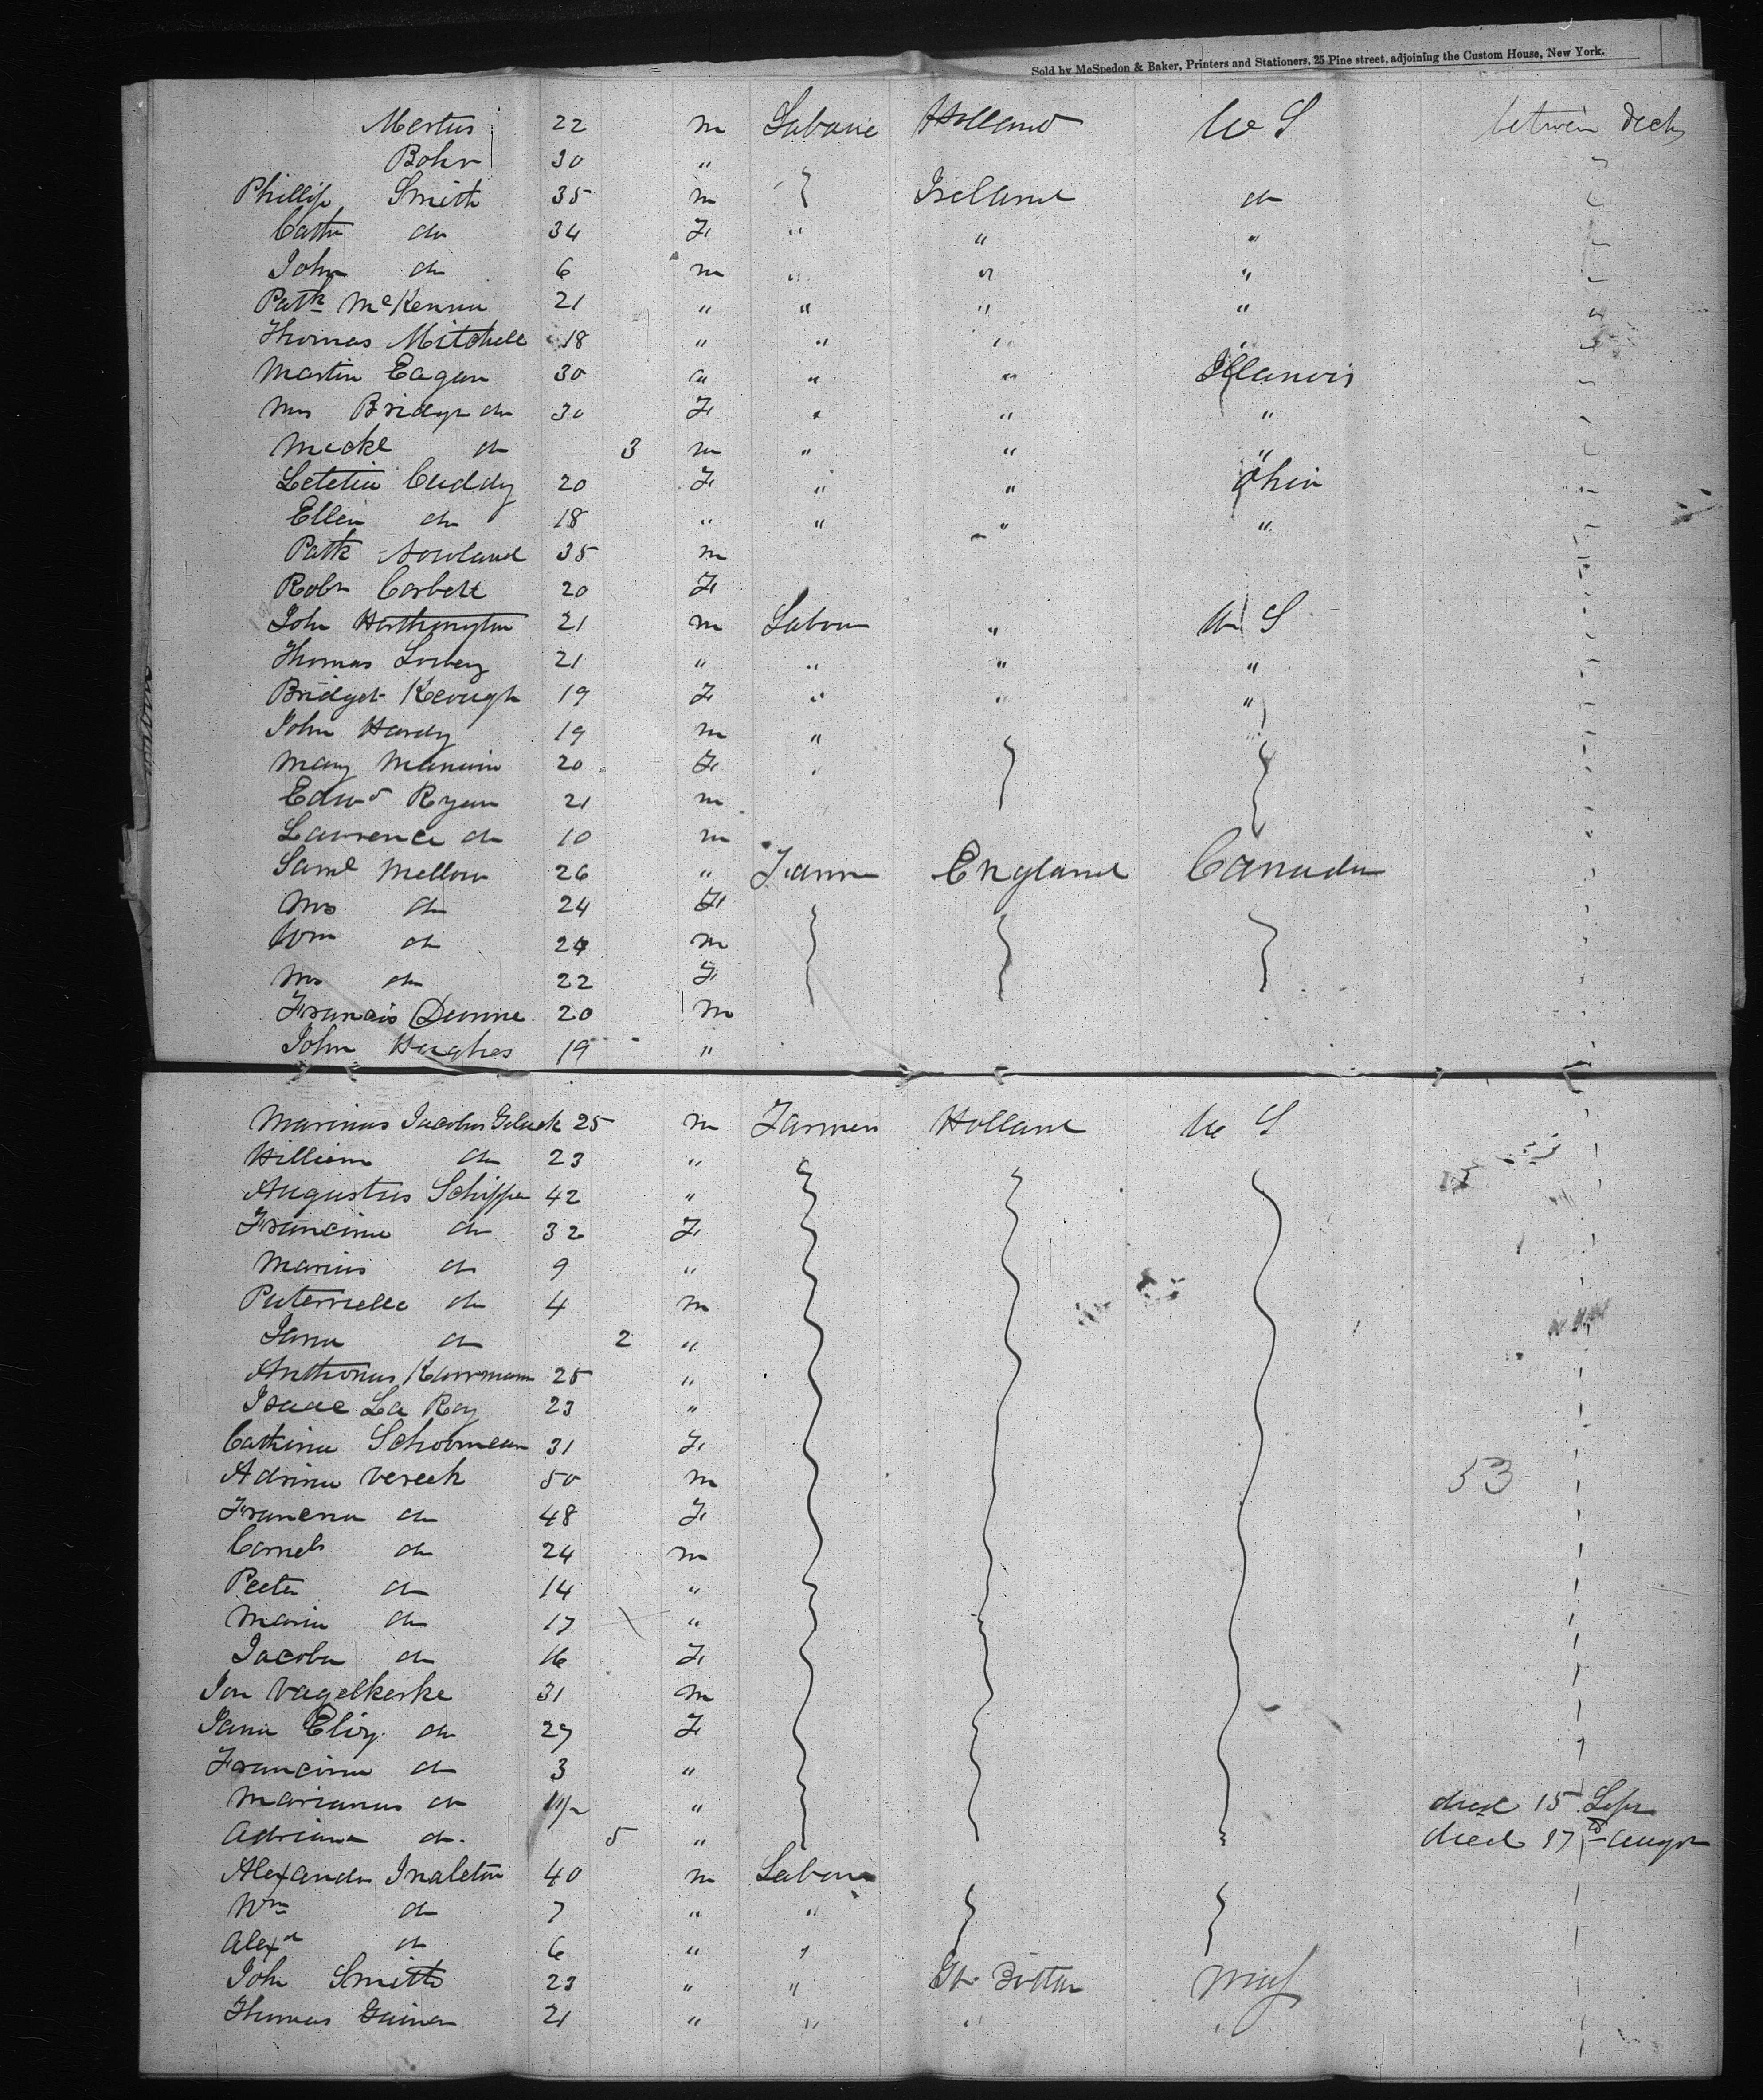 Sold by McSpedon & Baker, Printers and Stationers, 25 Pine street, adjoining the Custom House, New York.
Mertus 22 m Holland U S between decks
Bohr 30 "
Phillip Smith 35 m Ireland do
Cath do 34 F " " "
John do 6 m " " "
Patk McKenna 21 " " " "
Thomas Mitchell 18 " " " "
Martin Eagan 30 " " " Illanois
Mrs Bridgt do 30 F " " "
do 3 m " " "
Letetia Cuddy 20 F " " Ohio
Ellen do 18 " " " "
Patk Nowland 35 m
Robr Corbett 20 F
John Worthington 21 m Labour " U S
Thomas Lowery 21 " " " "
Bridget Keough 19 F " " "
John Hardy 19 m "
Mary 20 F "
Edwd Ryan 21 m
Lawrence do 10 m
Saml Mellow 26 " Farmer England Canada
Mrs do 24 F
Wm do 24 m
Mrs do 22 F
Francis 20 m
John Hughes 19 "
Marinus Jacobus 25 m Farmer Holland U S
William do 23 "
Augustus Schipper 42 "
Francina do 32 F
Marius do 9 "
do 4 m
Jana do 2 "
Anthonus 25 "
Isaac La Roy 23 "
Cathina Schooman 31 F
Adrina Vereek 50 m
Francna do 48 F
Cornels do 24 m
Peeter do 14 "
Maria do 17 "
Jacoba do 16 F
Jan Vagelkerke 31 m
Jana Eliz do 27 F
Francina do 3 "
Marianus do 1 1/2 " died 15 Sepr
Adriana do 5 " died 17 Augst
Alexander 40 m Labour
Wm do 7 " "
Alexr do 6 " "
John Smith 23 " " Gt Brittan
Thomas 21 " " " "
53